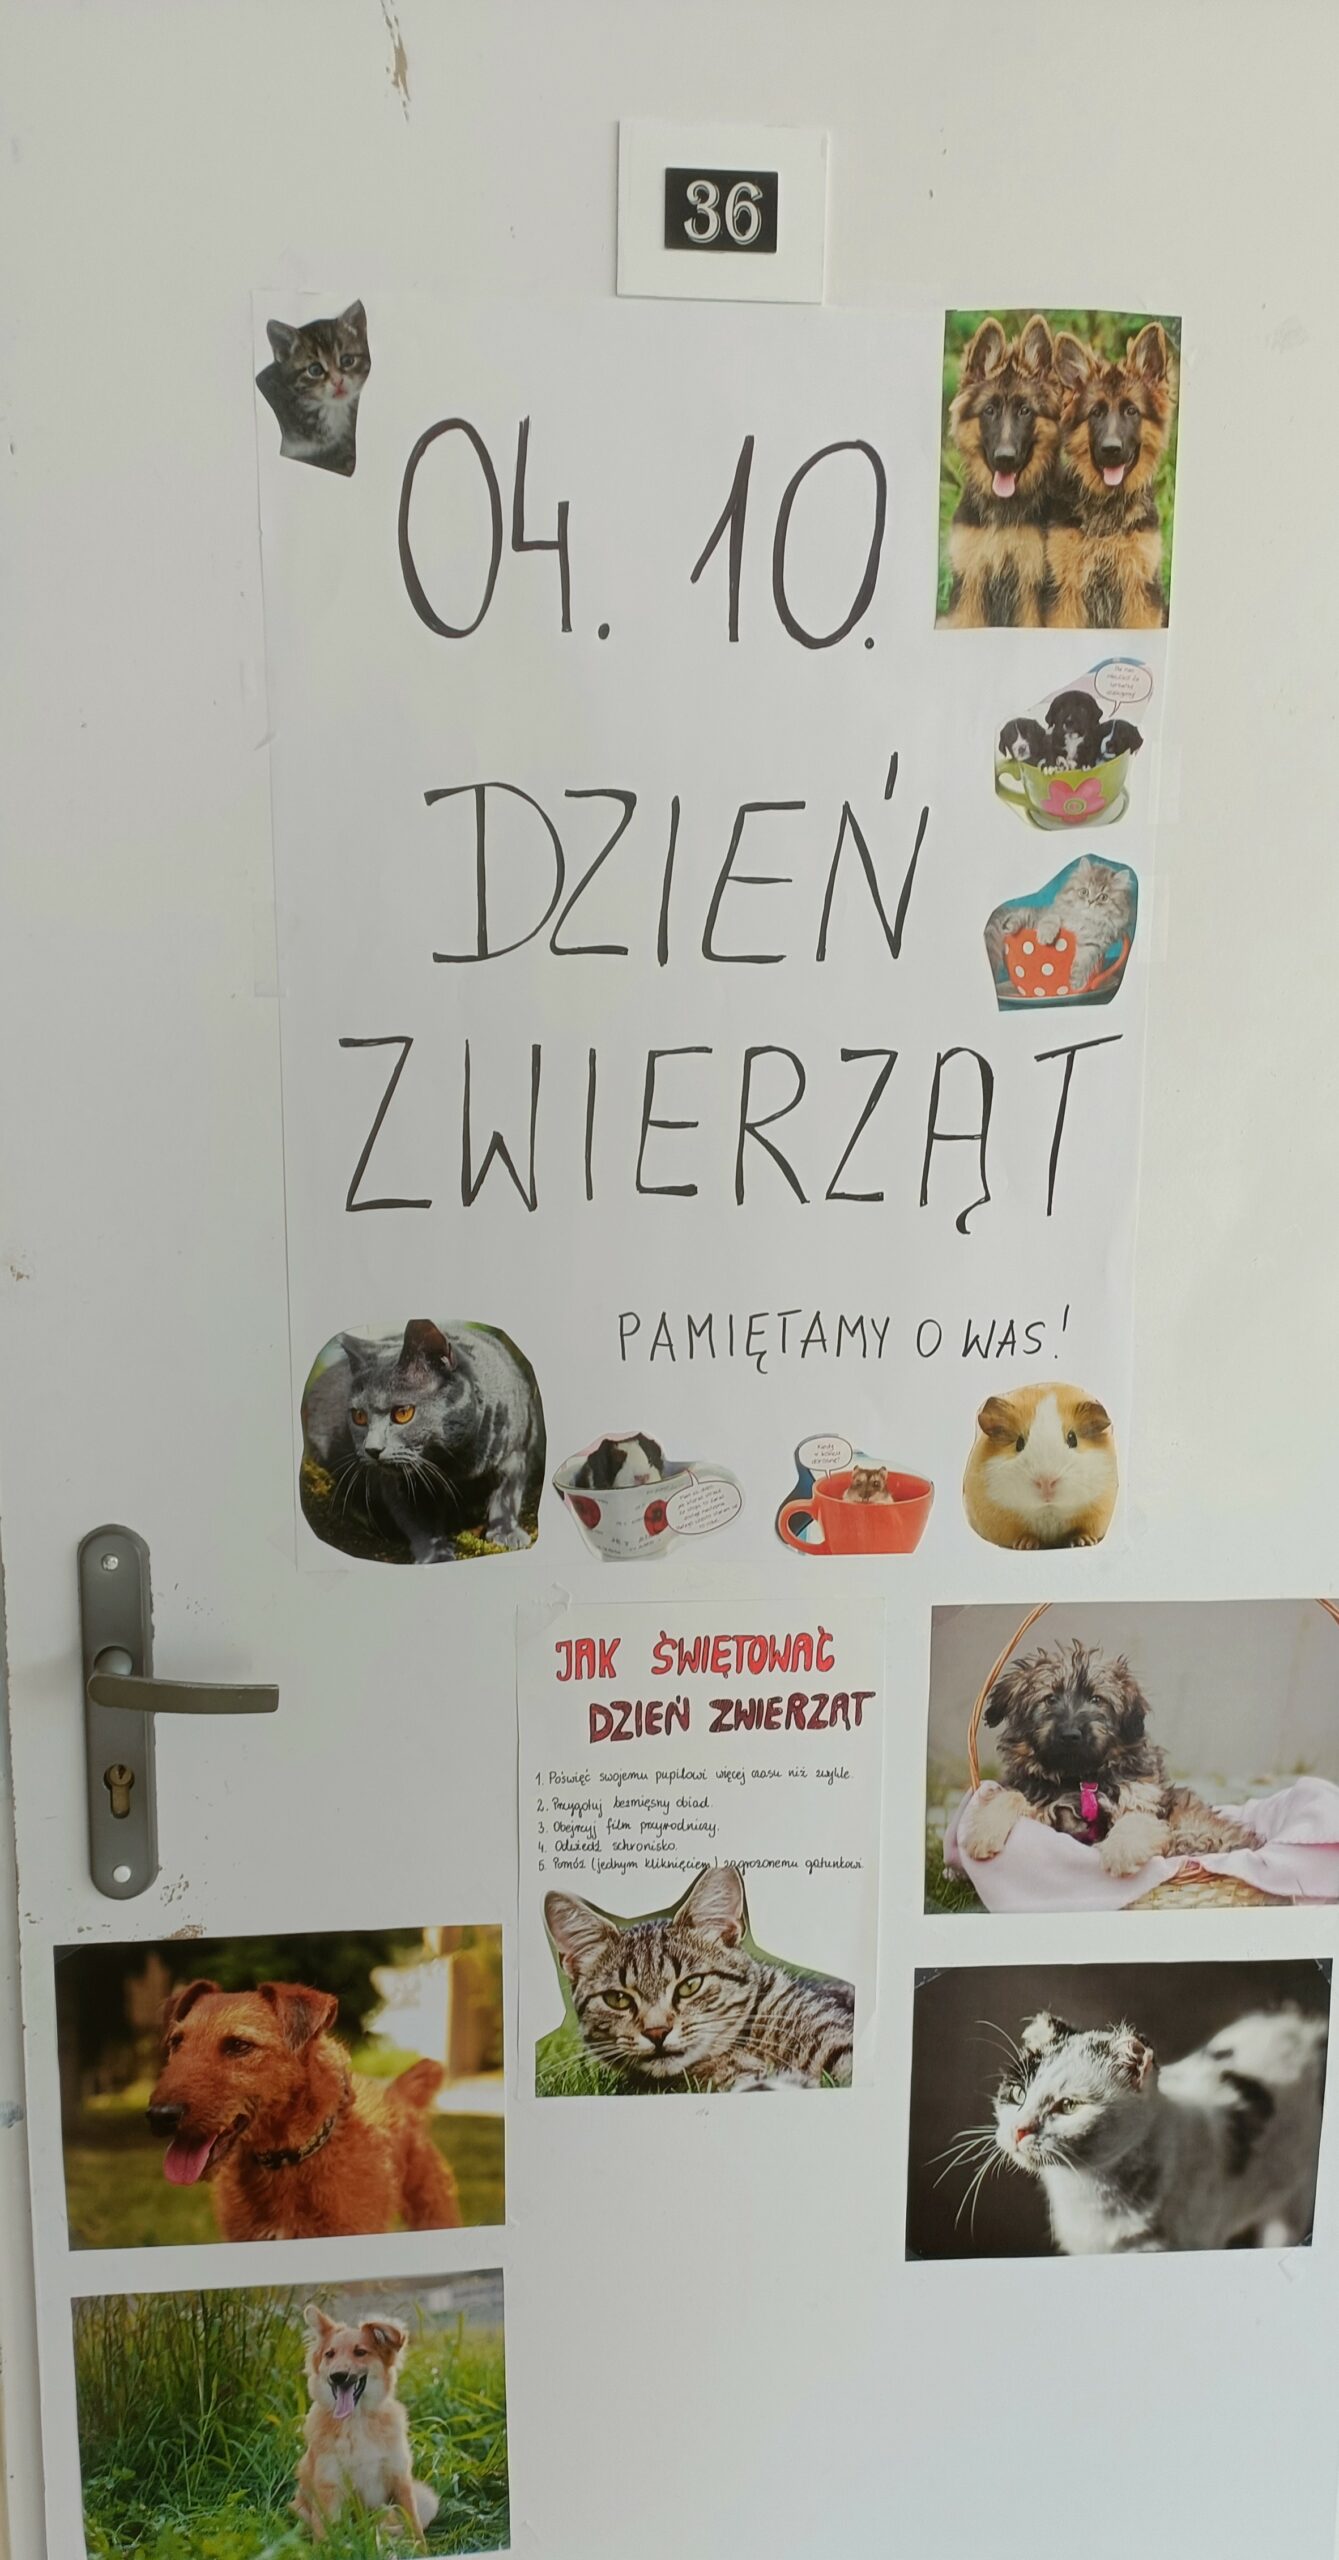 36
04. 10.
DZIEŃ
ZWIERZĄT
PAMIĘTAMY O WAS!
JAK ŚWIĘTOWAĆ
DZIEŃ ZWIERZĄT
1. Poświęć swojemu pupilowi więcej czasu niż zwykle.
2. Przygotuj bezmięsny obiad.
3. Obejrzyj film przyrodniczy.
4. Odwiedź schronisko.
5. Pomóż (jednym kliknięciem) zagrożonemu gatunkowi.